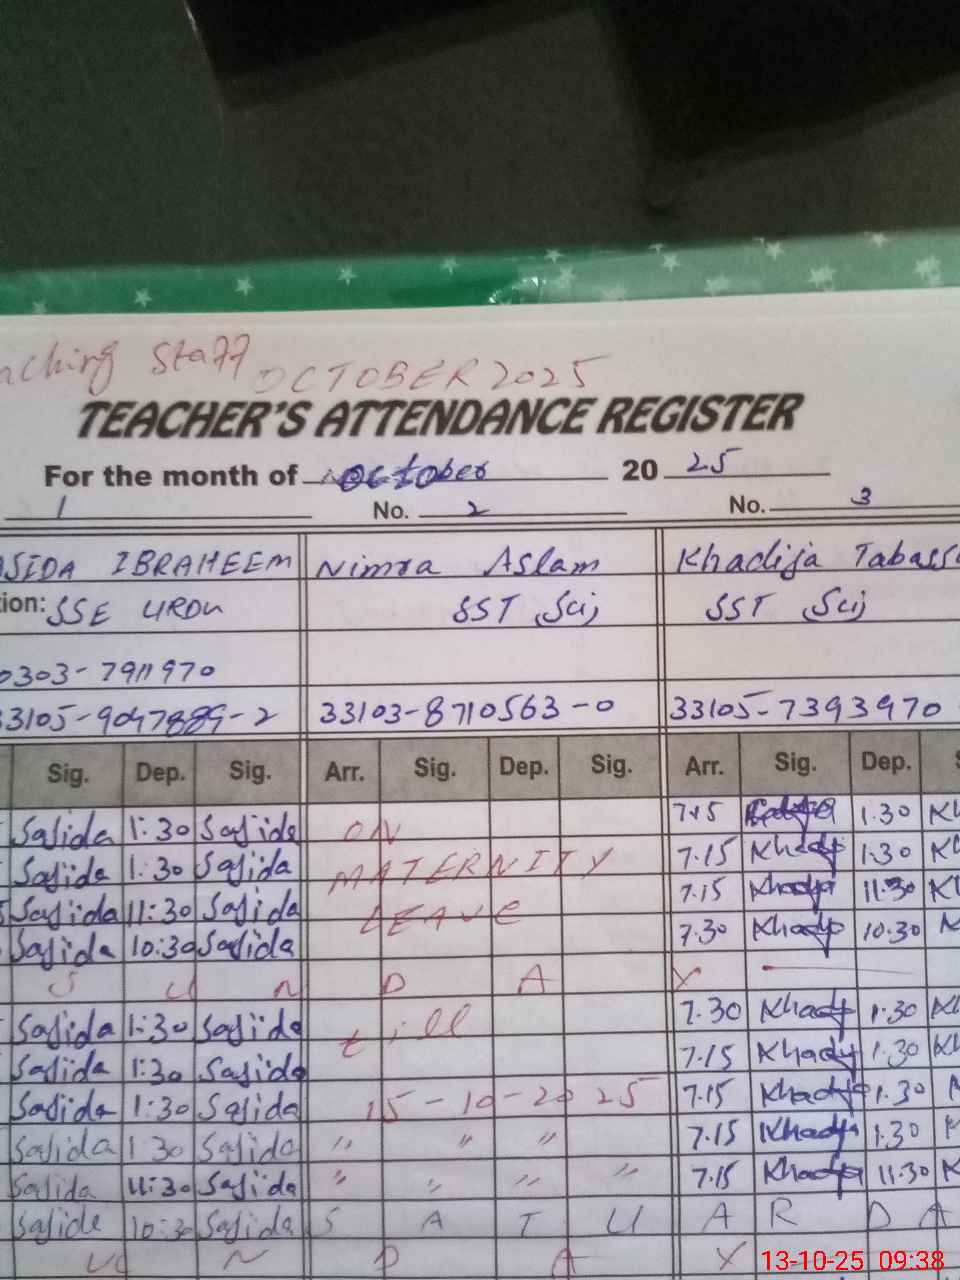 aching Staff OCTOBER 2025
TEACHER'S ATTENDANCE REGISTER
For the month of October 20 25
1 No. 2 No. 3
SIDA IBRAHEEM Nimra Aslam Khadija Tabass
ion: SSE URDU SST Sci SST Sci
0303-7911970
33105-9047889-2 33103-8710563-0 33105-7393970
Sig. Dep. Sig. Arr. Sig. Dep. Sig. Arr. Sig. Dep. S
Sajida 1:30 Sajida ON 7.15 1.30 Kh
Sajida 1:30 Sajida MATERNITY 7.15 Khady 1.30 Kh
Sajida 11:30 Sajida LEAVE 7.15 Khadija 11.30 Kh
Sajida 10:30 Sajida 7.30 Khady 10.30
S U N D A Y
Sajida 1:30 Sajida till 7.30 Khady 1.30 Kh
Sajida 1:30 Sajida 7.15 Khady 1.30 Kh
Sajida 1:30 Sajida 15-10-2025 7.15 Khadija 1.30
Sajida 1 30 Sajida " " " 7.15 Khadija 1.30
Sajida 11:30 Sajida " " " " 7.15 Khadija 11.30 K
Sajida 10:30 Sajida S A T U A R D A
U N D A Y
13-10-25 09:38